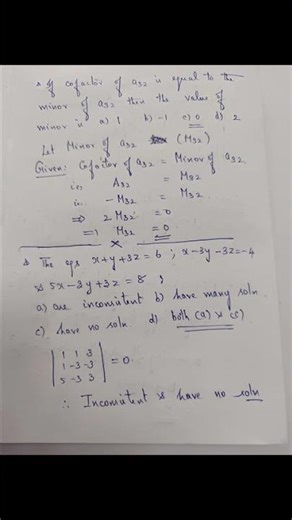 If cofactor of a32 is equal to the
minor of a32 then the value of
minor is a) 1 b) -1 c) 0 d) 2
Let Minor of a32 (M32)
Given: Cofactor of a32 = Minor of a32
ie, A32 = M32
ie. -M32 = M32
⇒ 2 M32 = 0
⇒ M32 = 0
x
The eqs x+y+3z=6 ; x-3y-3z=-4
5x-3y+3z=8 ;
a) are inconsistent b) have many soln
c) have no soln d) both (a) & (c)
| 1 1 3 |
| 1 -3 -3 | = 0
| 5 -3 3 |
∴ Inconsistent & have no soln